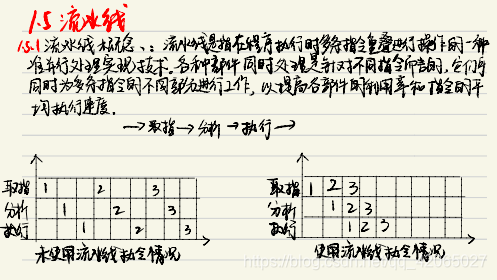 1.5 流水线
1.5.1 流水线概念：流水线是指在程序执行时多条指令重叠进行操作的一种
准并行处理实现技术。各种部件同时处理是针对不同指令而言的，它们可
同时为多条指令的不同部分进行工作，以提高各部件的利用率和指令的平
均执行速度。
→取指→分析→执行→
取指 1 2 3
分析 1 2 3
执行 1 2 3
未使用流水线执行情况
取指 1 2 3
分析 1 2 3
执行 1 2 3
使用流水线执行情况